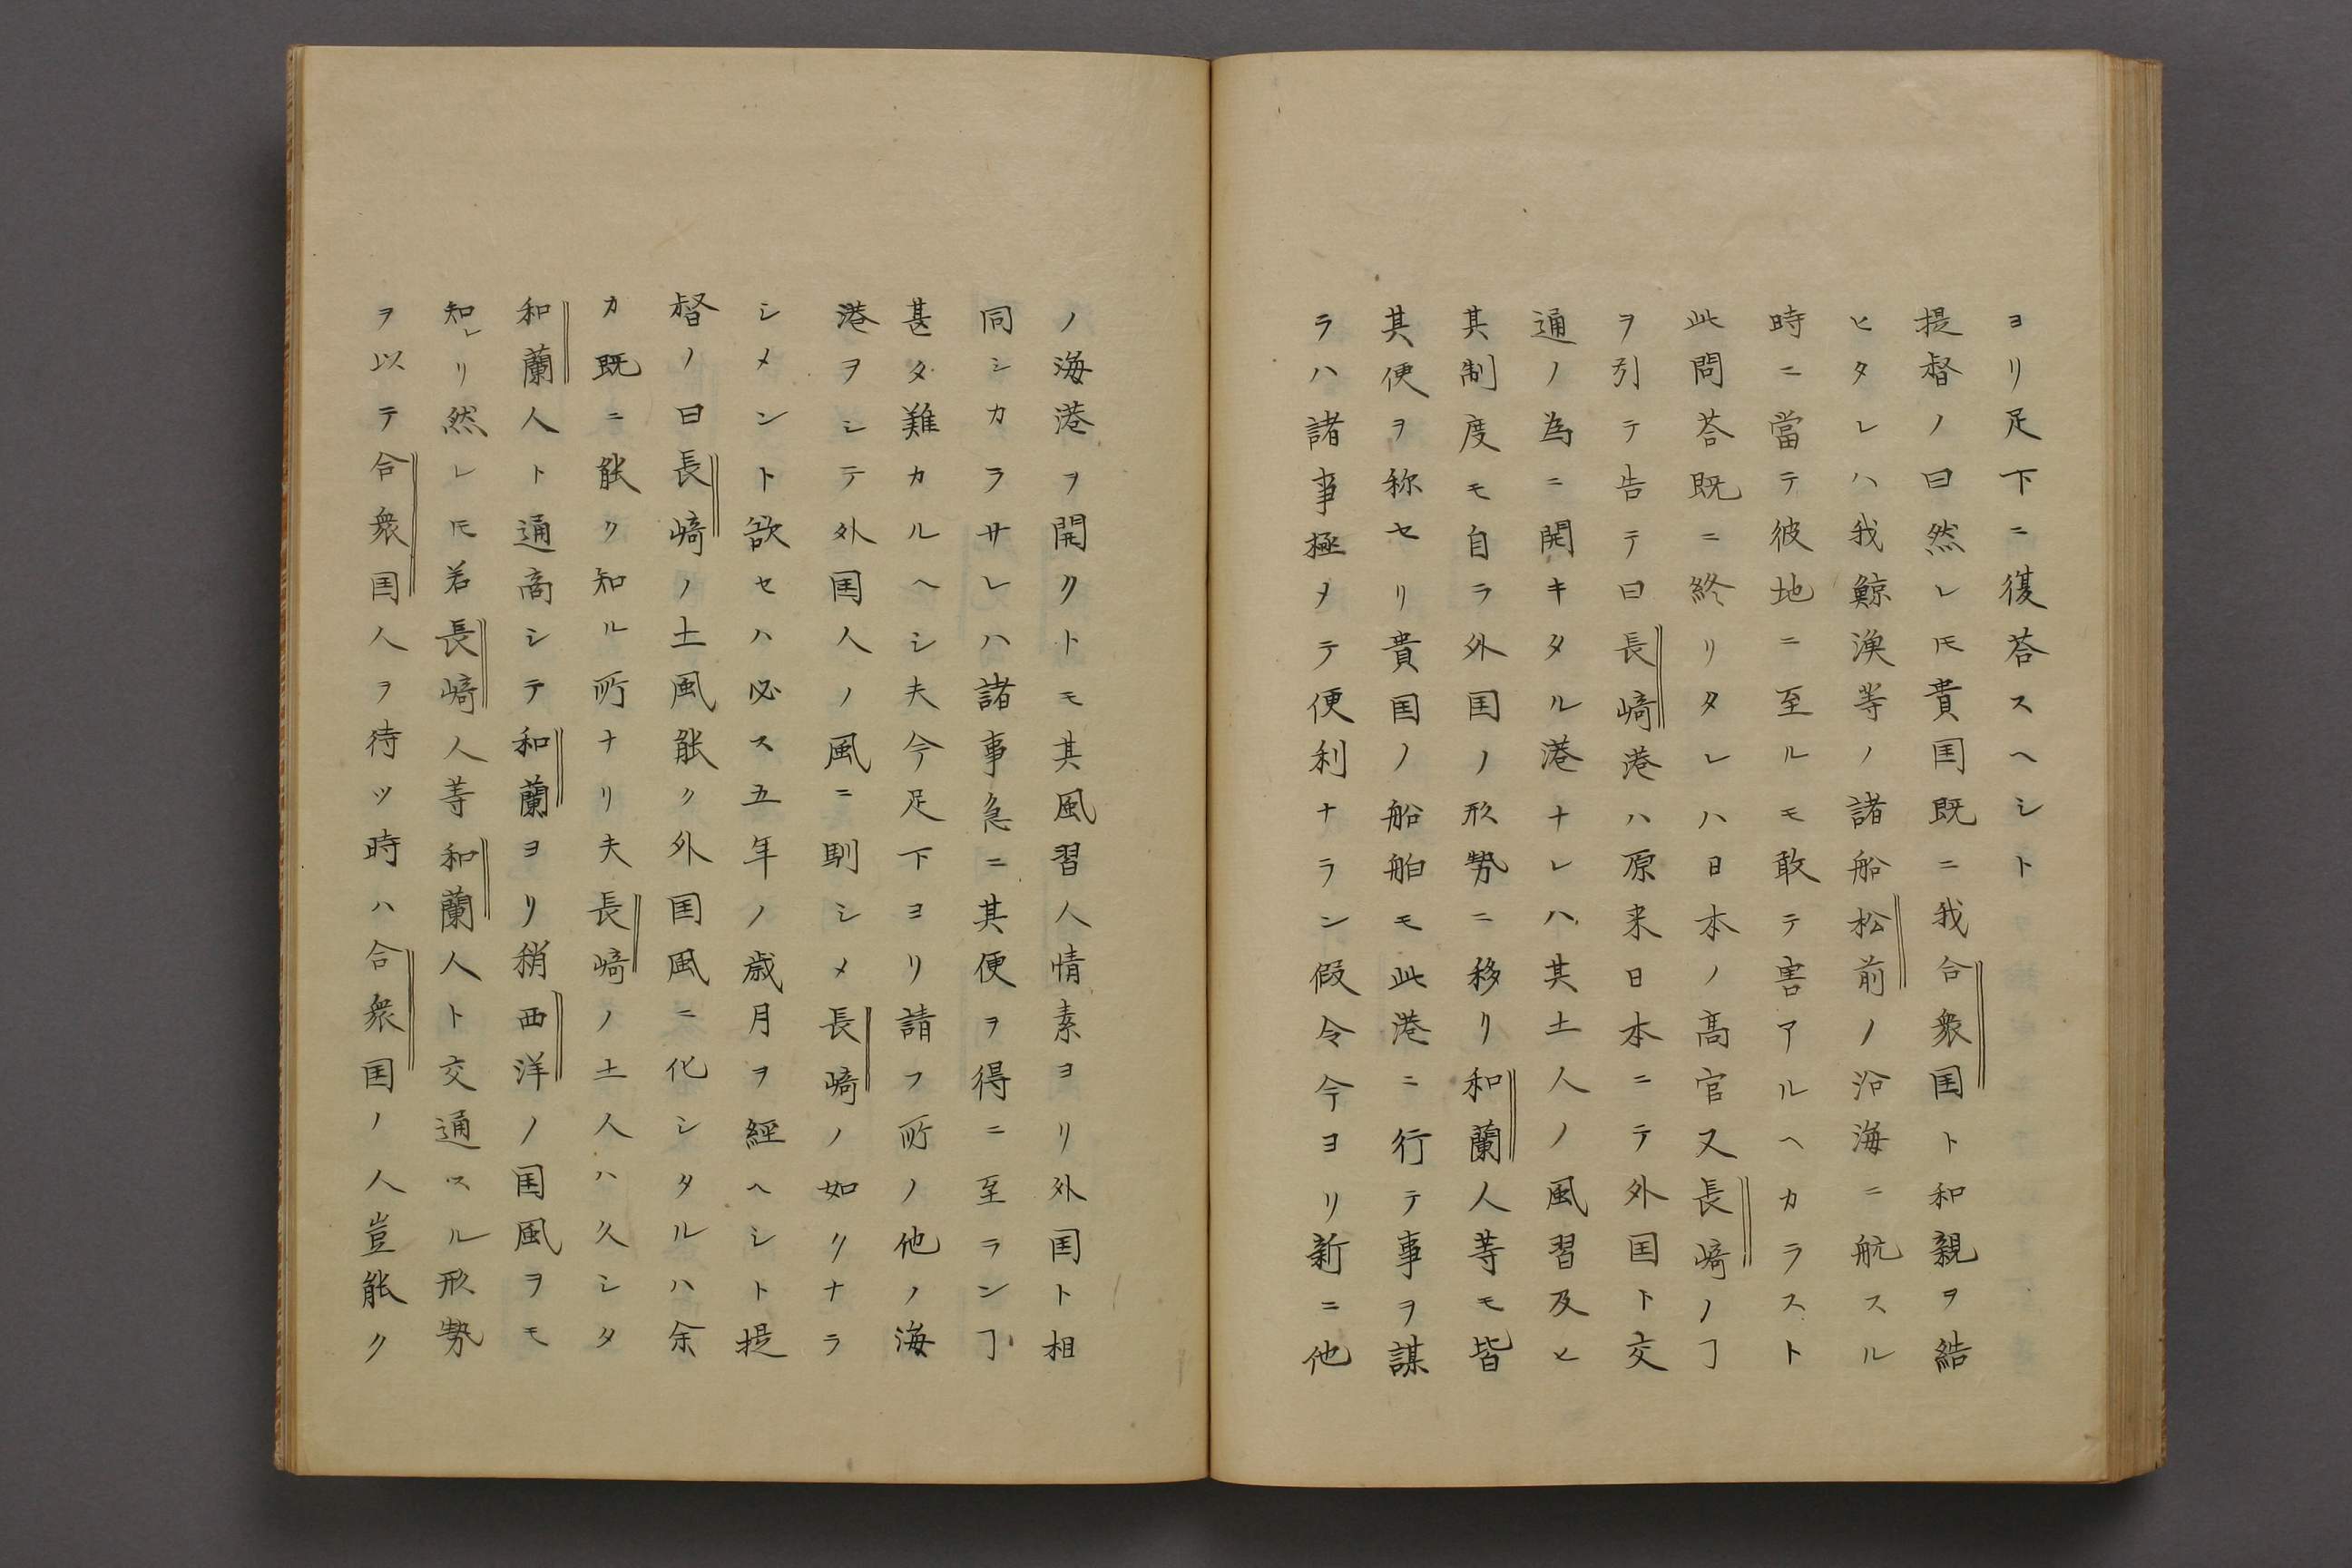 ヨリ足下ニ復荅スヘシト
提督ノ曰然レ𪜈貴囯既ニ我合衆囯ト和親ヲ結
ヒタレハ我鯨漁等ノ諸船松前ノ沿海ニ航スル
時ニ當テ彼地ニ至ルモ敢テ害アルヘカラスト
此問荅既ニ終リタレハ日本ノ髙官又長﨑ノヿ
ヲ引テ告テ曰長﨑港ハ原来日本ニテ外囯ト交
通ノ為ニ開キタル港ナレハ其土人ノ風習及ヒ
其制度モ自ラ外囯ノ形勢ニ移リ和蘭人等モ皆
其便ヲ称セリ貴囯ノ船舶モ此港ニ行テ事ヲ謀
ラハ諸事極メテ便利ナラン假令今ヨリ新ニ他
ノ海港ヲ開クトモ其風習人情素ヨリ外囯ト相
同シカラサレハ諸事急ニ其便ヲ得ニ至ランヿ
甚タ難カルヘシ夫今足下ヨリ請フ所ノ他ノ海
港ヲシテ外囯人ノ風ニ馴シメ長﨑ノ如クナラ
シメント欲セハ必ス五年ノ歳月ヲ經ヘシト提
督ノ曰長﨑ノ土風能ク外囯風ニ化シタルハ余
カ既ニ能ク知ル所ナリ夫長﨑ノ土人ハ久シタ
和蘭人ト通商シテ和蘭ヨリ稍西洋ノ囯風ヲモ
知レリ然レ𪜈若長﨑人等和蘭人ト交通スル形勢
ヲ以テ合衆囯人ヲ待ツ時ハ合衆囯ノ人豈能ク